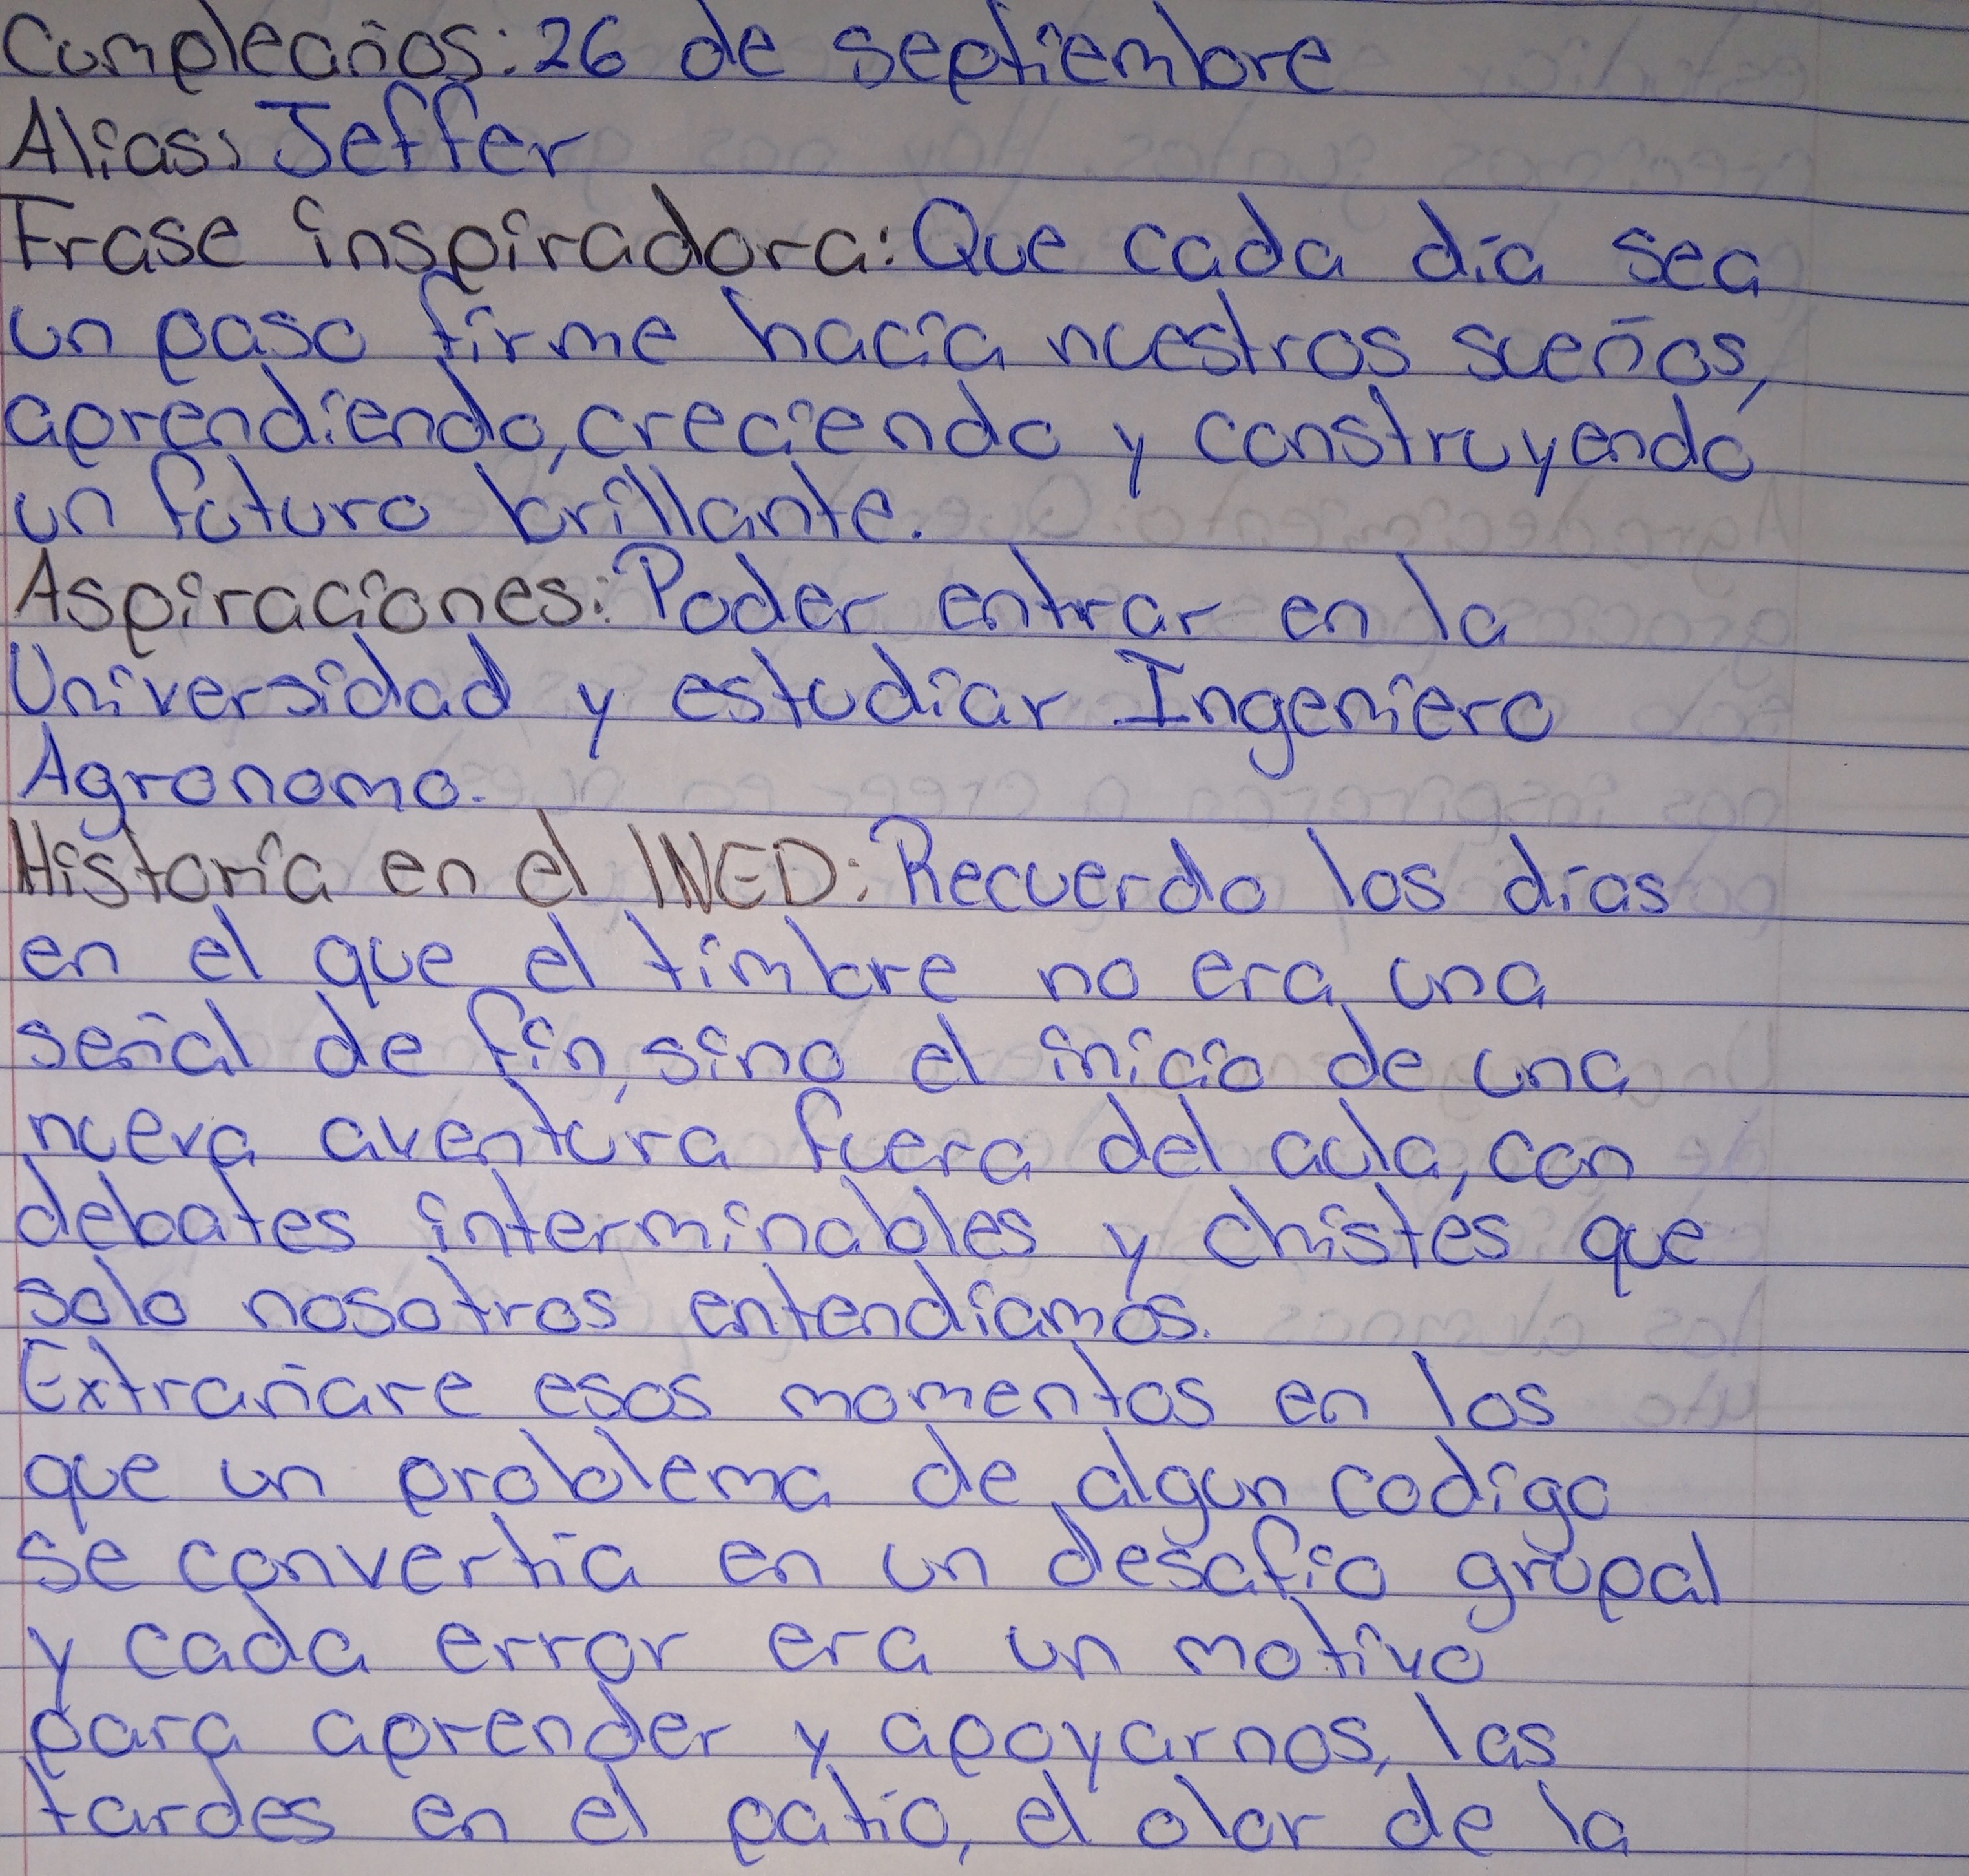 Cumpleaños: 26 de septiembre
Alias: Jeffer
Frase inspiradora: Que cada día sea
un paso firme hacia nuestros sueños,
aprendiendo, creciendo y construyendo
un futuro brillante.
Aspiraciones: Poder entrar en la
Universidad y estudiar Ingeniero
Agronomo.
Historia en el INED: Recuerdo los días
en el que el timbre no era una
señal de fin, sino el inicio de una
nueva aventura fuera del aula, con
debates interminables y chistes que
solo nosotros entendíamos.
Extrañare esos momentos en los
que un problema de algun codigo
se convertía en un desafío grupal
y cada error era un motivo
para aprender y apoyarnos, las
tardes en el patio, el olor de la